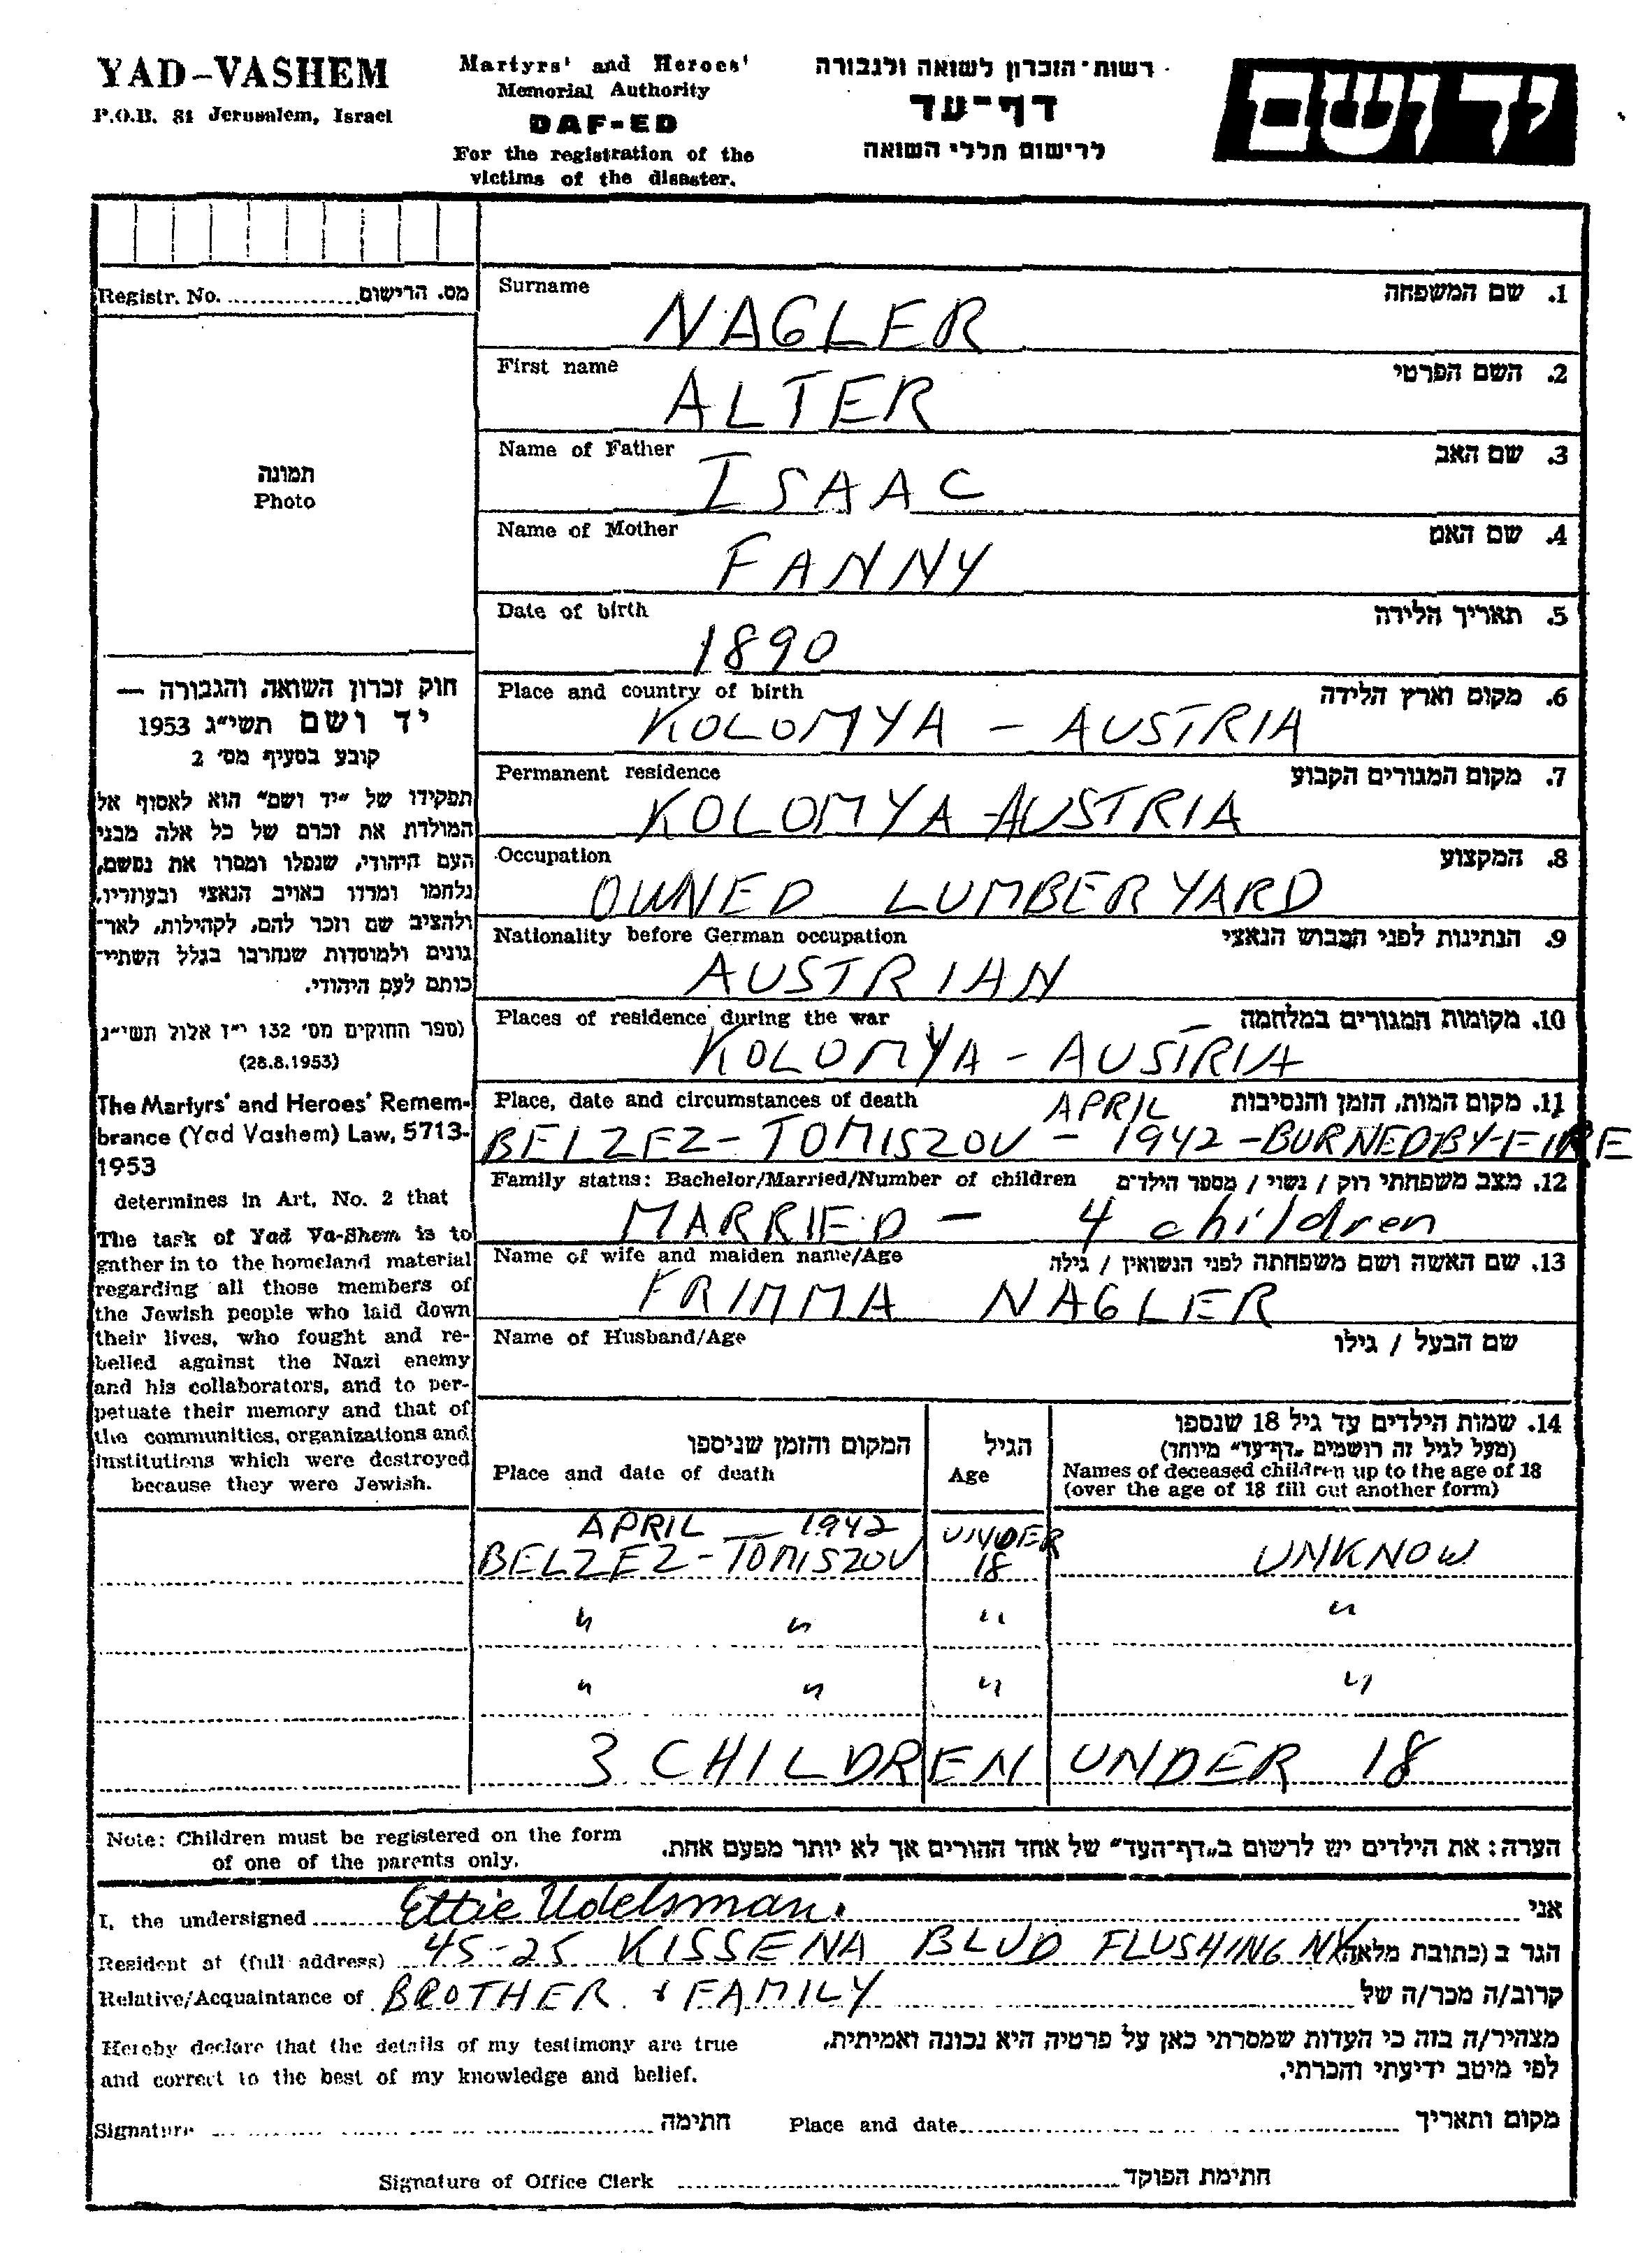 YAD-VASHEM
P.O.B. 84 Jerusalem, Israel
Martyrs' and Heroes'
Memorial Authority
DAF-ED
For the registration of the
victims of the disaster.
רשות-הזכרון לשואה ולגבורה
דף-עד
לרישום חללי השואה
יד ושם
Registr. No. ................ מס. הרישום
תמונה
Photo
חוק זכרון השואה והגבורה —
יד ושם תשי״ג 1953
קובע בסעיף מס' 2
תפקידו של ״יד ושם״ הוא לאסוף אל
המולדת את זכרם של כל אלה מבני
העם היהודי, שנפלו ומסרו את נפשם,
נלחמו ומרדו באויב הנאצי ובעוזריו,
ולהציב שם וזכר להם, לקהילות, לאר־
גונים ולמוסדות שנחרבו בגלל השתיי־
כותם לעם היהודי.
(ספר החוקים מס' 132 י״ז אלול תשי״ג
(28.8.1953)
The Martyrs' and Heroes' Remem-
brance (Yad Vashem) Law, 5713-
1953
determines in Art. No. 2 that
The task of Yad Va-Shem is to
gather in to the homeland material
regarding all those members of
the Jewish people who laid down
their lives, who fought and re-
belled against the Nazi enemy
and his collaborators, and to per-
petuate their memory and that of
the communities, organizations and
institutions which were destroyed
because they were Jewish.
Surname 1. שם המשפחה
NAGLER
First name 2. השם הפרטי
ALTER
Name of Father 3. שם האב
ISAAC
Name of Mother 4. שם האם
FANNY
Date of birth 5. תאריך הלידה
1890
Place and country of birth 6. מקום וארץ הלידה
KOLOMYA - AUSTRIA
Permanent residence 7. מקום המגורים הקבוע
KOLOMYA-AUSTRIA
Occupation 8. המקצוע
OWNED LUMBERYARD
Nationality before German occupation 9. הנתינות לפני הכבוש הנאצי
AUSTRIAN
Places of residence during the war 10. מקומות המגורים במלחמה
KOLOMYA - AUSTRIA
Place, date and circumstances of death 11. מקום המות, הזמן והנסיבות
APRIL
BELZEZ-TOMISZOV - 1942 -BURNED BY-FIRE
Family status: Bachelor/Married/Number of children 12. מצב משפחתי רוק / נשוי / מספר הילדים
MARRIED - 4 children
Name of wife and maiden name/Age 13. שם האשה ושם משפחתה לפני הנשואין / גילה
FRIMMA NAGLER
Name of Husband/Age שם הבעל / גילו
14. שמות הילדים עד גיל 18 שנספו
(מעל לגיל זה רושמים ״דף־עד״ מיוחד)
Names of deceased children up to the age of 18
(over the age of 18 fill out another form)
הגיל
Age
המקום והזמן שניספו
Place and date of death
APRIL — 1942
BELZEZ-TOMISZOV UNDER 18 UNKNOW
" " " "
" " " "
3 CHILDREN UNDER 18
Note: Children must be registered on the form
of one of the parents only.
הערה: את הילדים יש לרשום ב״דף־העד״ של אחד ההורים אך לא יותר מפעם אחת.
I, the undersigned Ettie Udelsman. אני
Resident at (full address) 45-25 KISSENA BLVD FLUSHING NY הגר ב (כתובת מלאה)
Relative/Acquaintance of BROTHER & FAMILY קרוב/ה מכר/ה של
Hereby declare that the details of my testimony are true
and correct to the best of my knowledge and belief.
מצהיר/ה בזה כי העדות שמסרתי כאן על פרטיה היא נכונה ואמיתית,
לפי מיטב ידיעתי והכרתי.
Signature חתימה Place and date מקום ותאריך
Signature of Office Clerk חתימת הפוקד